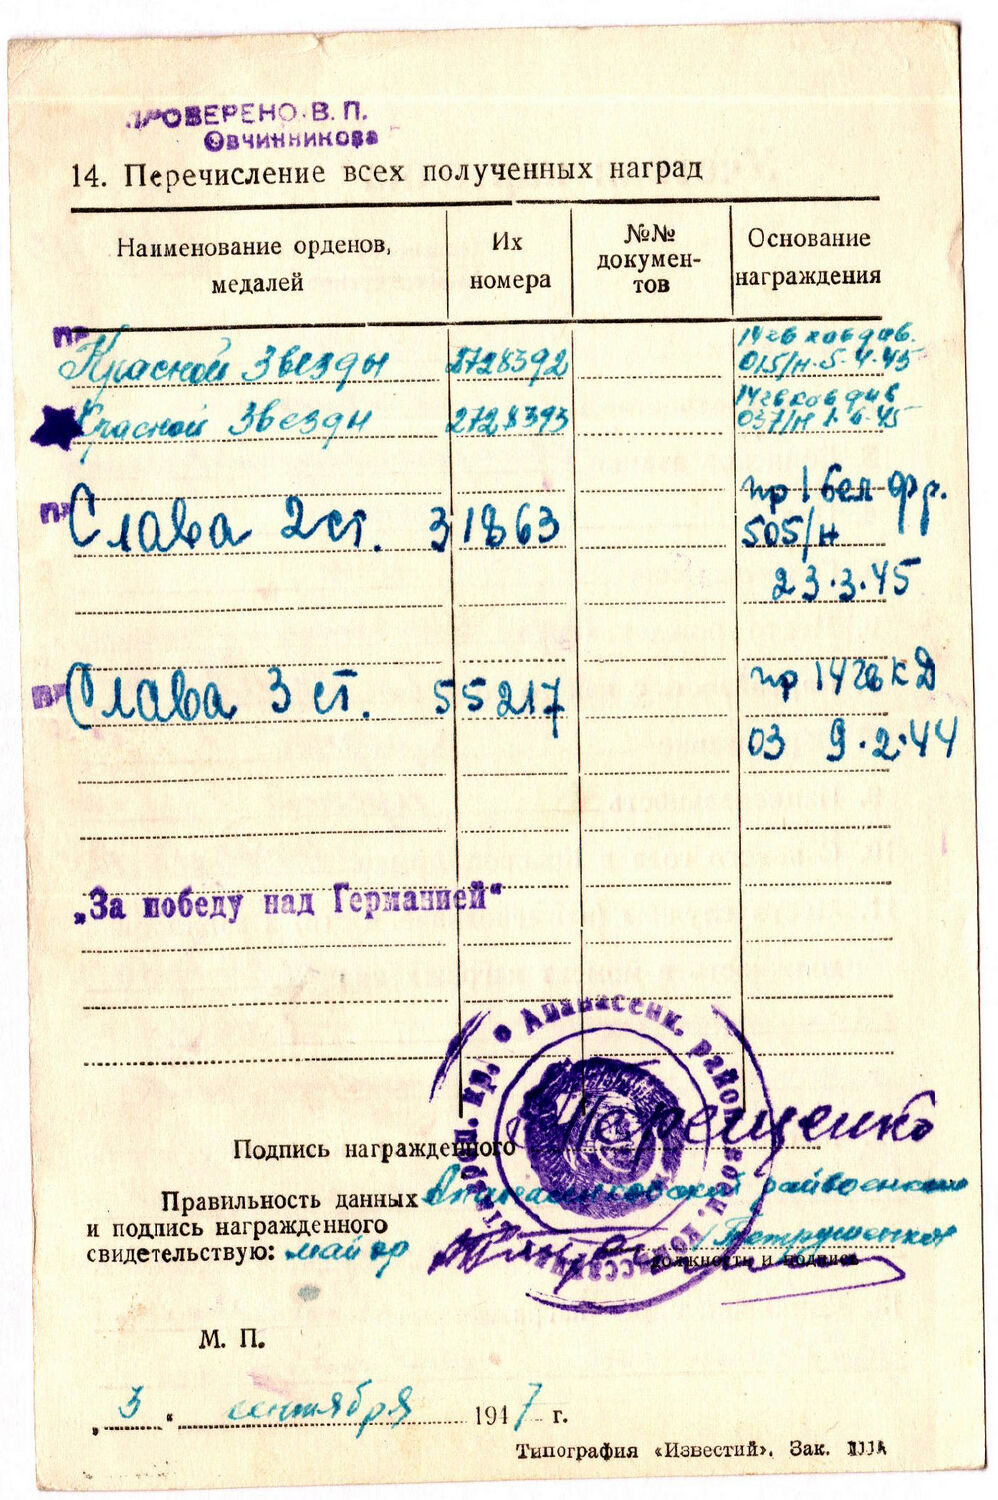 ПРОВЕРЕНО. В. П.
Овчинникова
14. Перечисление всех полученных наград
Наименование орденов, медалей
Их номера
№№ документов
Основание награждения
Пр
Красной Звезды 2728392 14 гв кав див. 015/н 5-4-45
Красной Звезды 2728393 14 гв кав див 037/н 6-45
Пр
Слава 2 ст. 31863 пр 1 бел фр.
505/н
23.3.45
Пр
Слава 3 ст. 55217 пр 14 гв КД
03 9.2.44
„За победу над Германией“
Апанасенк. район. воен. комиссариат
Подпись награжденного Терещенко
Правильность данных Апанасенковский райвоенком
и подпись награжденного
свидетельствую: майор /Петрушенко
должность и подпись
М. П.
„ 3 “ сентября 1947 г.
Типография «Известий». Зак.